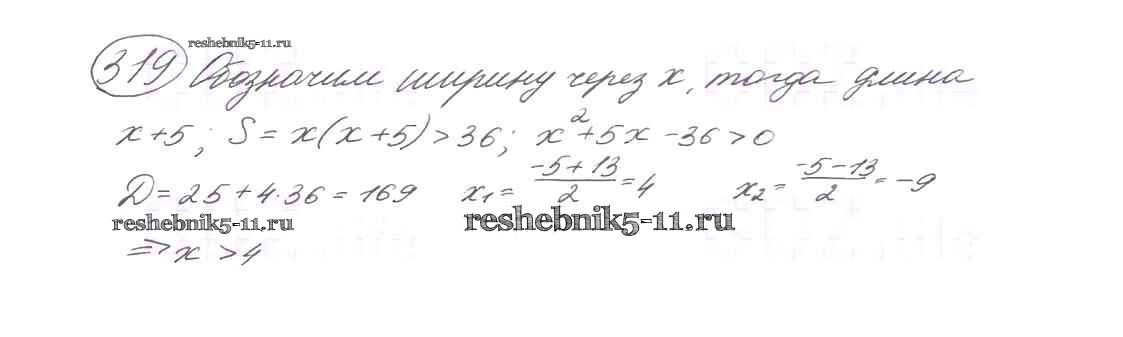 reshebnik5-11.ru
319 Обозначим ширину через x, тогда длина
x+5; S = x(x+5) > 36; x²+5x-36>0
D = 25+4·36 = 169 x₁ = (-5+13)/2 = 4 x₂ = (-5-13)/2 = -9
reshebnik5-11.ru reshebnik5-11.ru
=> x > 4